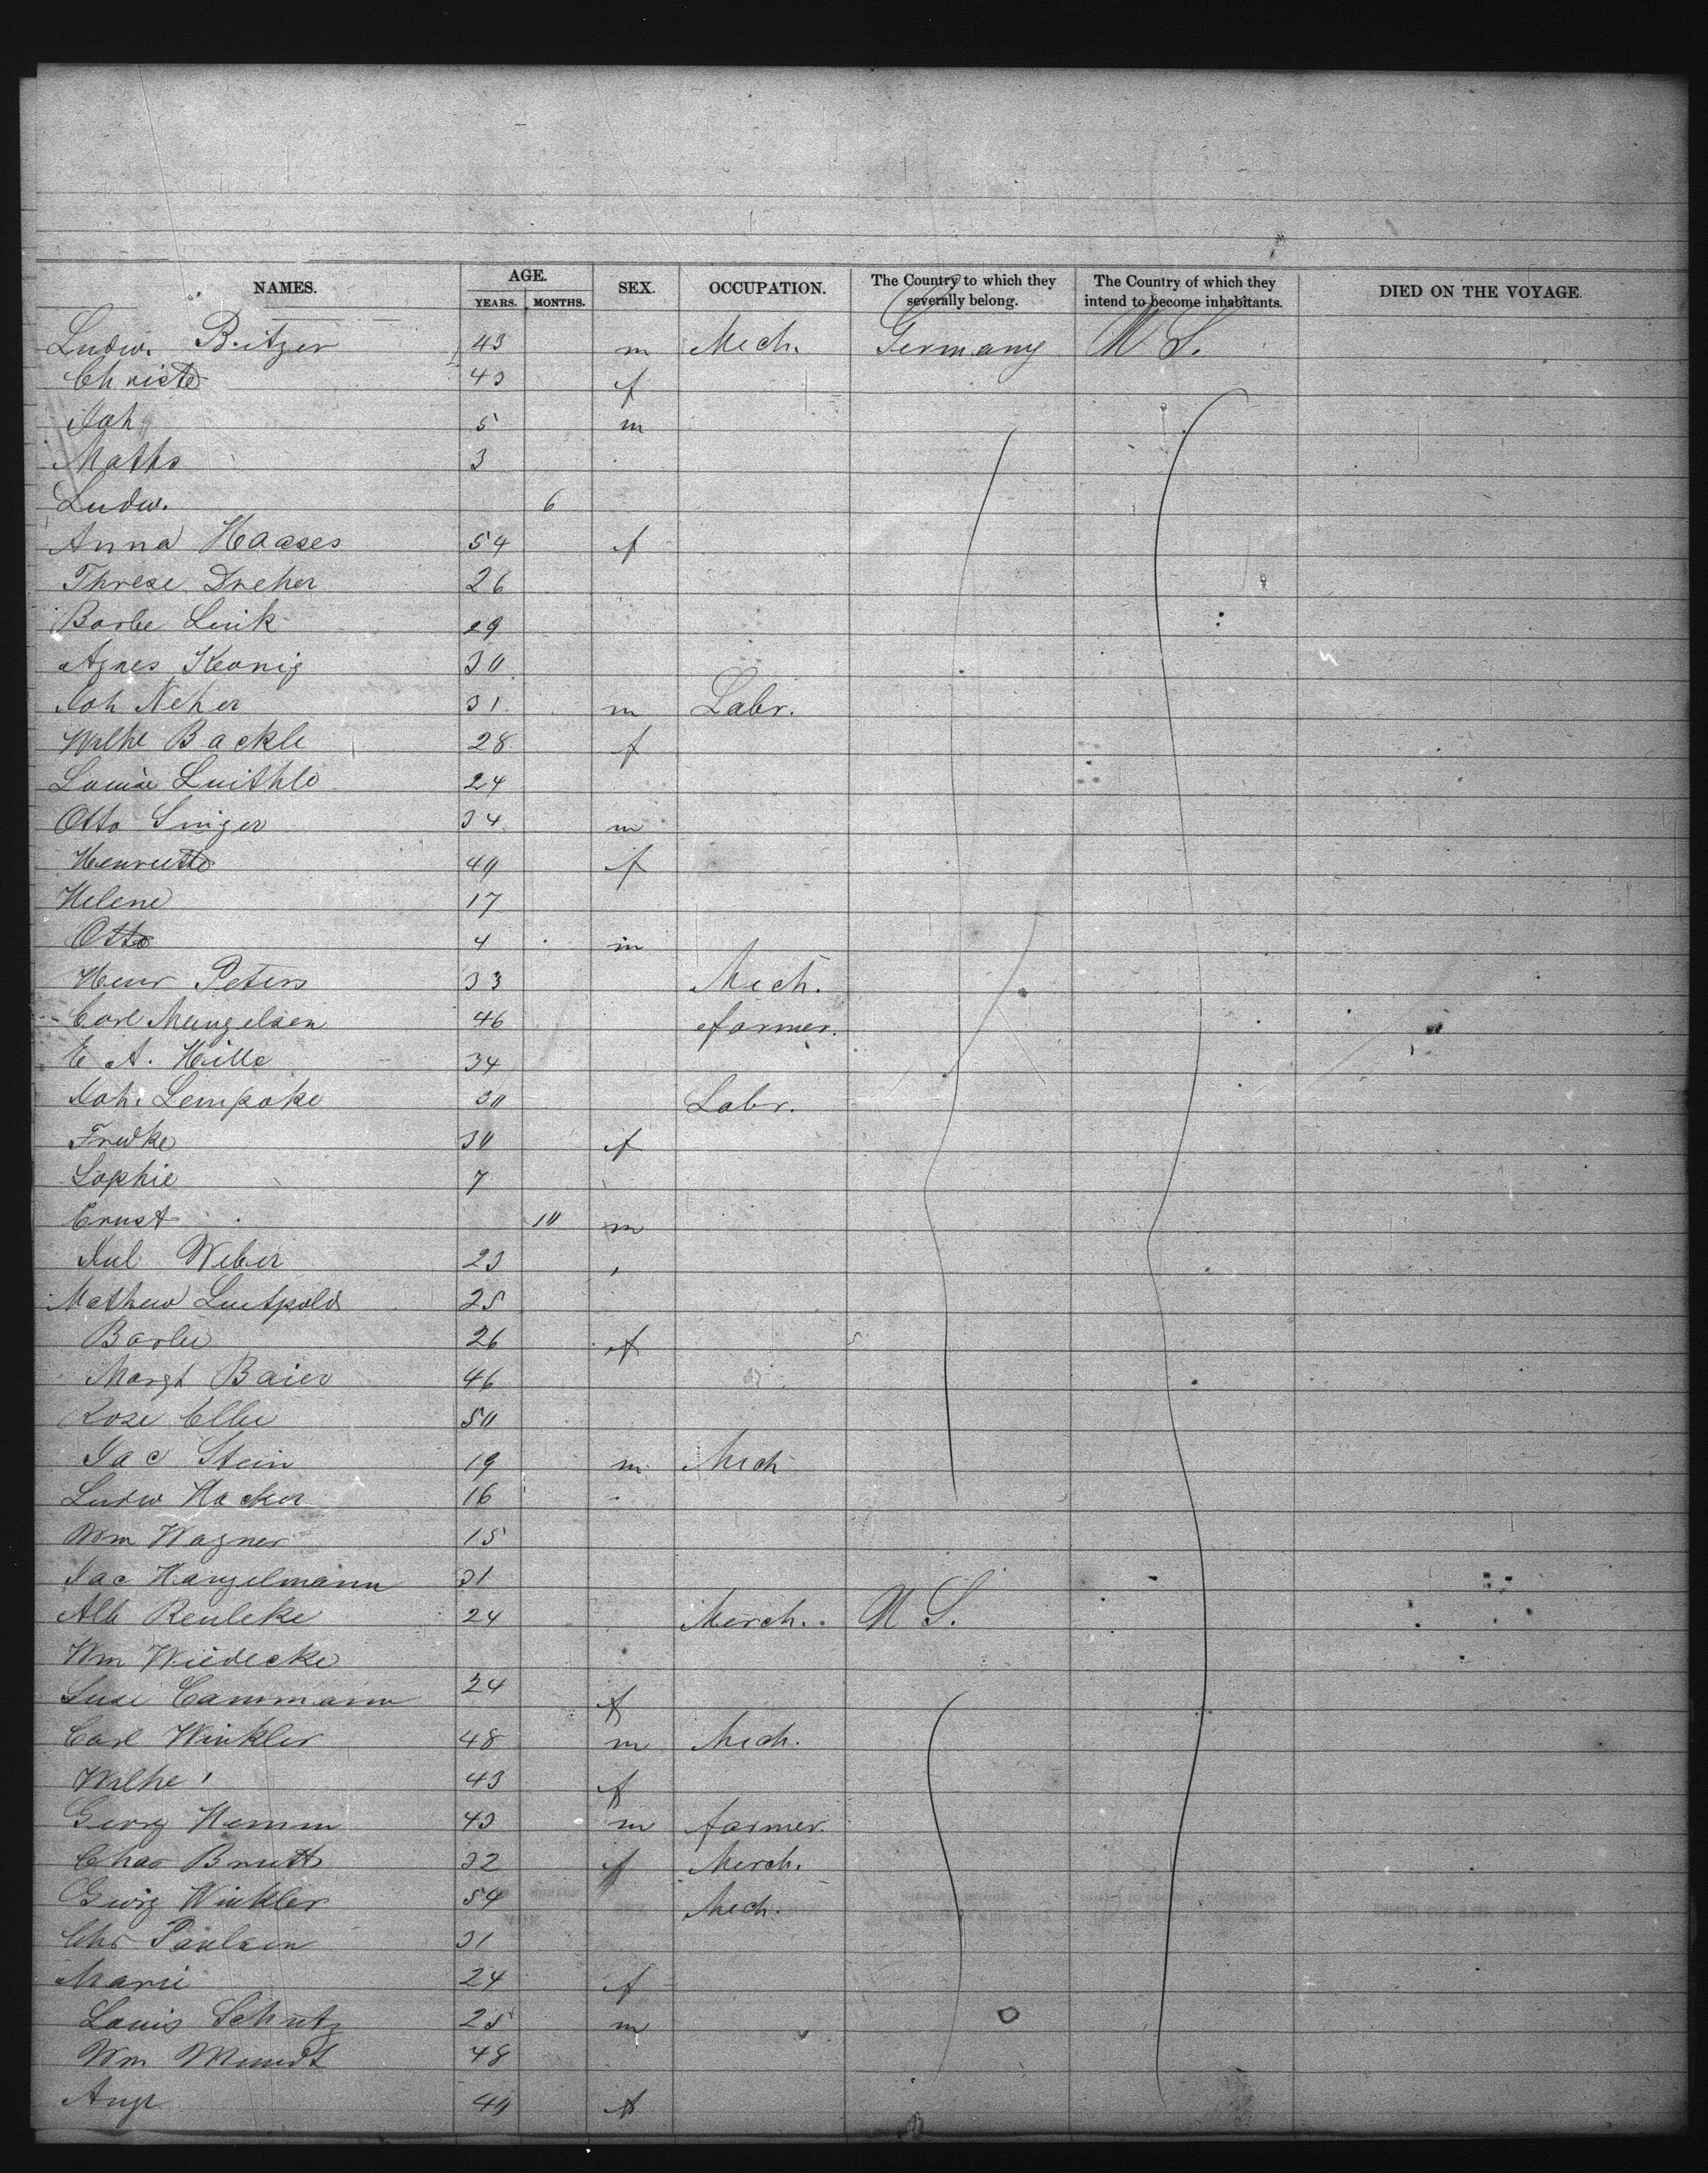 NAMES. AGE. SEX. OCCUPATION. The Country to which they severally belong. The Country of which they intend to become inhabitants. DIED ON THE VOYAGE.
YEARS. MONTHS.
Ludw. Bitzer 43 m Mech. Germany U S.
Christe 43 f
Joh 5 m
Maths 3
Ludw. 6
Anna Haases 54 f
Threse Dreher 26
Barbe Link 29
Agnes Keonig 30
Joh Neher 31 m Labr.
Wilhe Backle 28 f
Louise Luithle 24
Otto Singer 34 m
Henriette 40 f
Helene 17
Otto 4 m
Henr Peters 33 Mech.
Carl Mungelsen 46 farmer.
E A. Hille 34
Joh. Lempoke 30 Labr.
Fredke 30 f
Sophie 7
Ernst 10 m
Jul Weber 23
Mathew Luitpold 25
Barbe 26 f
Margt Baier 46
Rose 50
Jac Stein 19 m Mech
Ludw Hacker 16
Wm Wagner 15
Jac Hangelmann 31
Alb Renleke 24 Merch. U S.
Wm Wiedecke
Luse Cammann 24 f
Carl Winkler 48 m Mech.
Wilhe 43 f
Georg Hemm 43 m farmer.
Chas Brutts 32 f Merch.
Georg Winkler 54 Mech.
Chr Paulsen 31
Marie 24 f
Louis Schutz 25 m
Wm Mundt 48
Aug 40 f